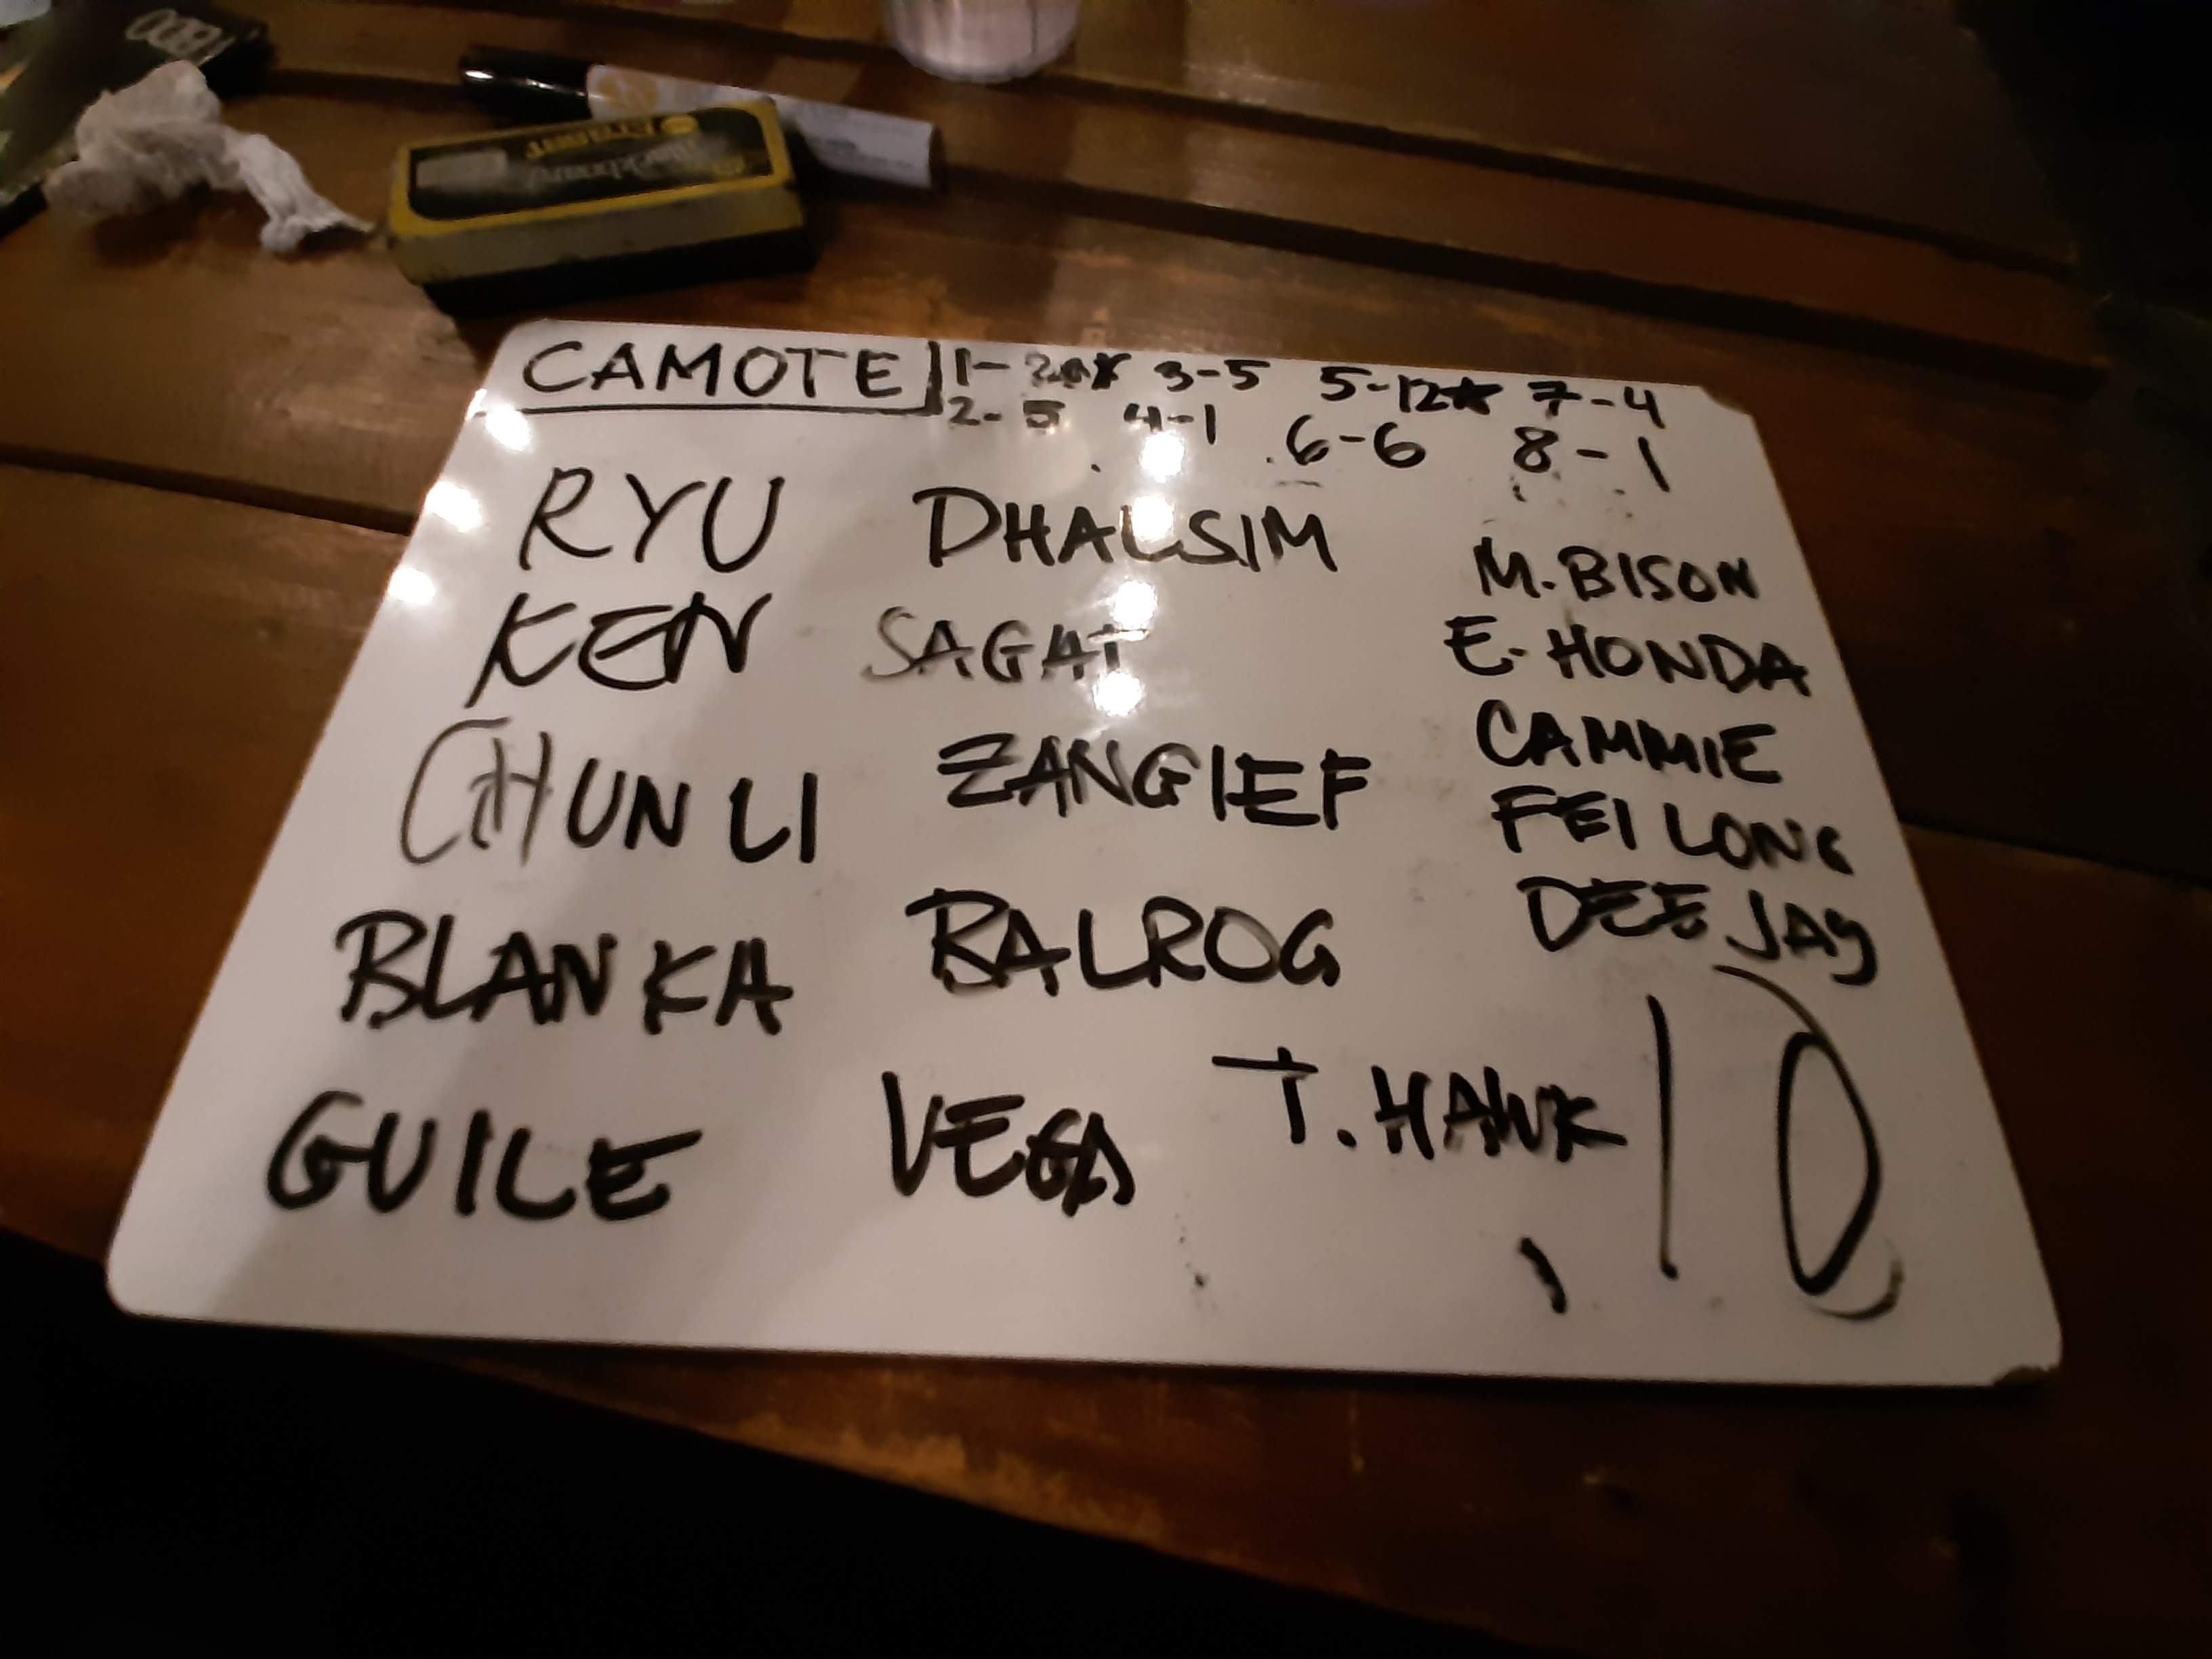 1800
Blackboard
Eraser
CAMOTE
1- 3-5 5-12★ 7-4
2-5 4-1 6-6 8-1
RYU
KEN
CHUN LI
BLANKA
GUILE
DHALSIM
SAGAT
ZANGIEF
BALROG
VEGA
M. BISON
E. HONDA
CAMMIE
FEI LONG
DEE JAY
T. HAWK
10